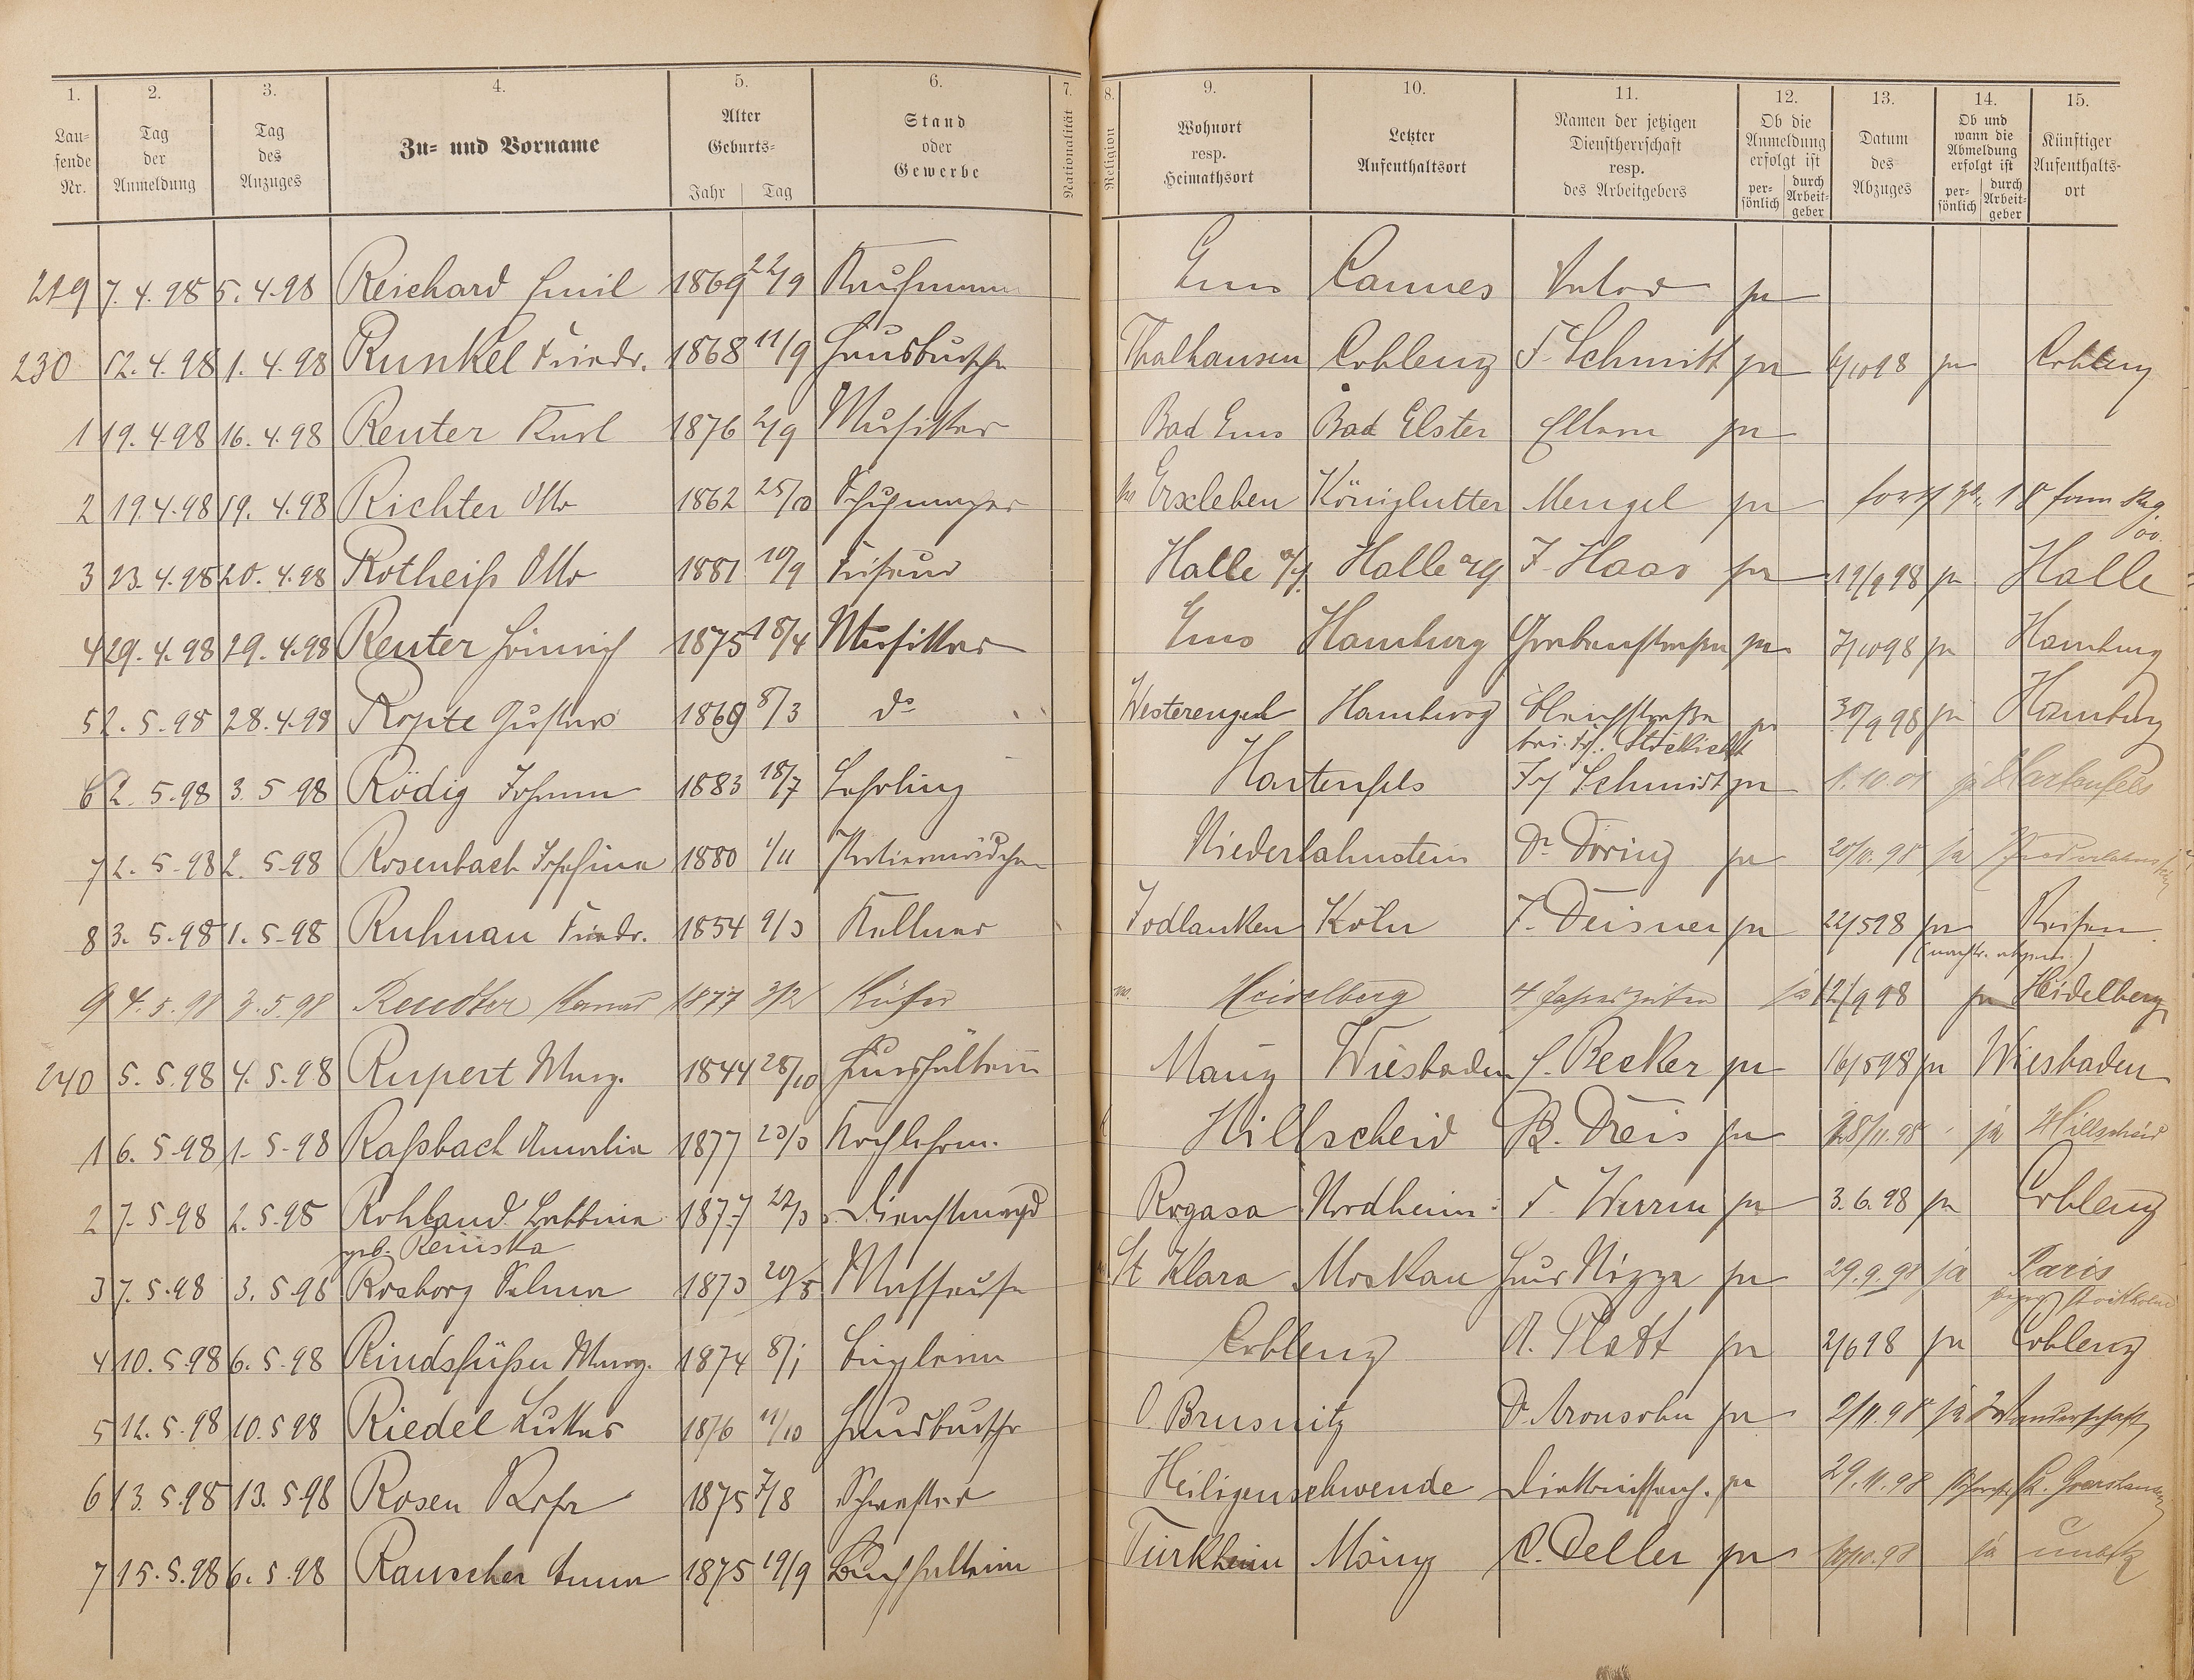 1. 2. 3. 4. 5. 6. 7. 8. 9. 10. 11. 12. 13. 14. 15.
Lau-fende Nr. | Tag der Anmeldung | Tag des Anzuges | Zu- und Vorname | Alter Geburts- Jahr Tag | Stand oder Gewerbe | Nationalität | Religion | Wohnort resp. Heimathsort | Letzter Aufenthaltsort | Namen der jetzigen Dienstherrschaft resp. des Arbeitgebers | Ob die Anmeldung erfolgt ist per-sönlich durch Arbeit-geber | Datum des Abzuges | Ob und wann die Abmeldung erfolgt ist per-sönlich durch Arbeit-geber | Künftiger Aufenthalts-ort
229 7.4.98 5.4.98 Reichard Emil 1869 22/9 Kaufmann Ems Cannes ja
230 12.4.98 1.4.98 Runkel Friedr. 1868 11/9 Hausbursche Thalhausen Coblenz F. Schmitt ja 6/10 98 ja Coblenz
1 19.4.98 16.4.98 Reuter Karl 1876 2/9 Musiker Bad Ems Bad Elster Eltern ja
2 19.4.98 19.4.98 Richter Otto 1862 25/10 Schuhmacher Erxleben Königlutter Mengel ja
3 23.4.98 20.4.98 Rotheiß Otto 1881 10/9 Friseur Halle a/S. Halle a/S F. Haas ja 19/9 98 ja Halle
4 29.4.98 29.4.98 Reuter Heinrich 1875 18/4 Musiker Ems Hamburg Grabenstrasse ja 7/10 98 ja Hamburg
5 2.5.98 28.4.98 Ropte Gustav 1869 8/3 do Westerengel Hamburg Bleichstraße ja 30/9 98 ja Hamburg
bei Fr. Stöckicht
6 2.5.98 3.5.98 Rödig Johann 1883 18/7 Lehrling Hartenfels Jos Schmidt ja 1.10.01 ja Hartenfels
7 2.5.98 2.5.98 Rosenbach Josefina 1880 1/11 Niederlahnstein Dr. Döring ja 20/10.98 ja Niederlahnstein
8 3.5.98 1.5.98 Ruhnau Friedr. 1854 9/3 Kellner Jodlauken Köln J. Deisner ja 22/5 98 ja Reisen
9 4.5.98 3.5.98 1877 3/2 Küfer Heidelberg 4 Jahreszeiten ja 12/9 98 ja Heidelberg
240 5.5.98 4.5.98 Rupert Marg. 1844 28/10 Haushälterin Mainz Wiesbaden C. Becker ja 16/5 98 ja Wiesbaden
1 6.5.98 1.5.98 Raßbach Amalia 1877 23/3 Kochlehrn. Hillscheid B. Dreis ja 28/11.98 ja Hillscheid
2 7.5.98 2.5.98 Rohland 1877 22/3 Dienstmagd Rogasa Nordheim F. Wurm ja 3.6.98 ja Coblenz
geb. Reinska
3 7.5.98 3.5.98 Rosborg Selma 1873 20/5 Masseuse St Klara Moskau Haus Nizza ja 29.9.98 ja Paris
Stockholm
4 10.5.98 6.5.98 Rindsfüßer Marg. 1874 8/1 Büglerin Coblenz A. Platt ja 2/6 98 ja Coblenz
5 12.5.98 10.5.98 Riedel Lukas 1876 11/10 Hausbursche O. Brusnitz Dr. Aronsohn ja 2/11.98 ja Wanderschaft
6 13.5.98 13.5.98 Rosen Rosa 1875 7/8 Schwester Heiligenschwende Diakonissenh. ja 29.11.98 St. Goarshausen
7 15.5.98 6.5.98 Rauscher Anna 1875 19/9 Buchhalterin Türkheim Mainz C. Deller ja 10/10.98 ja unbek